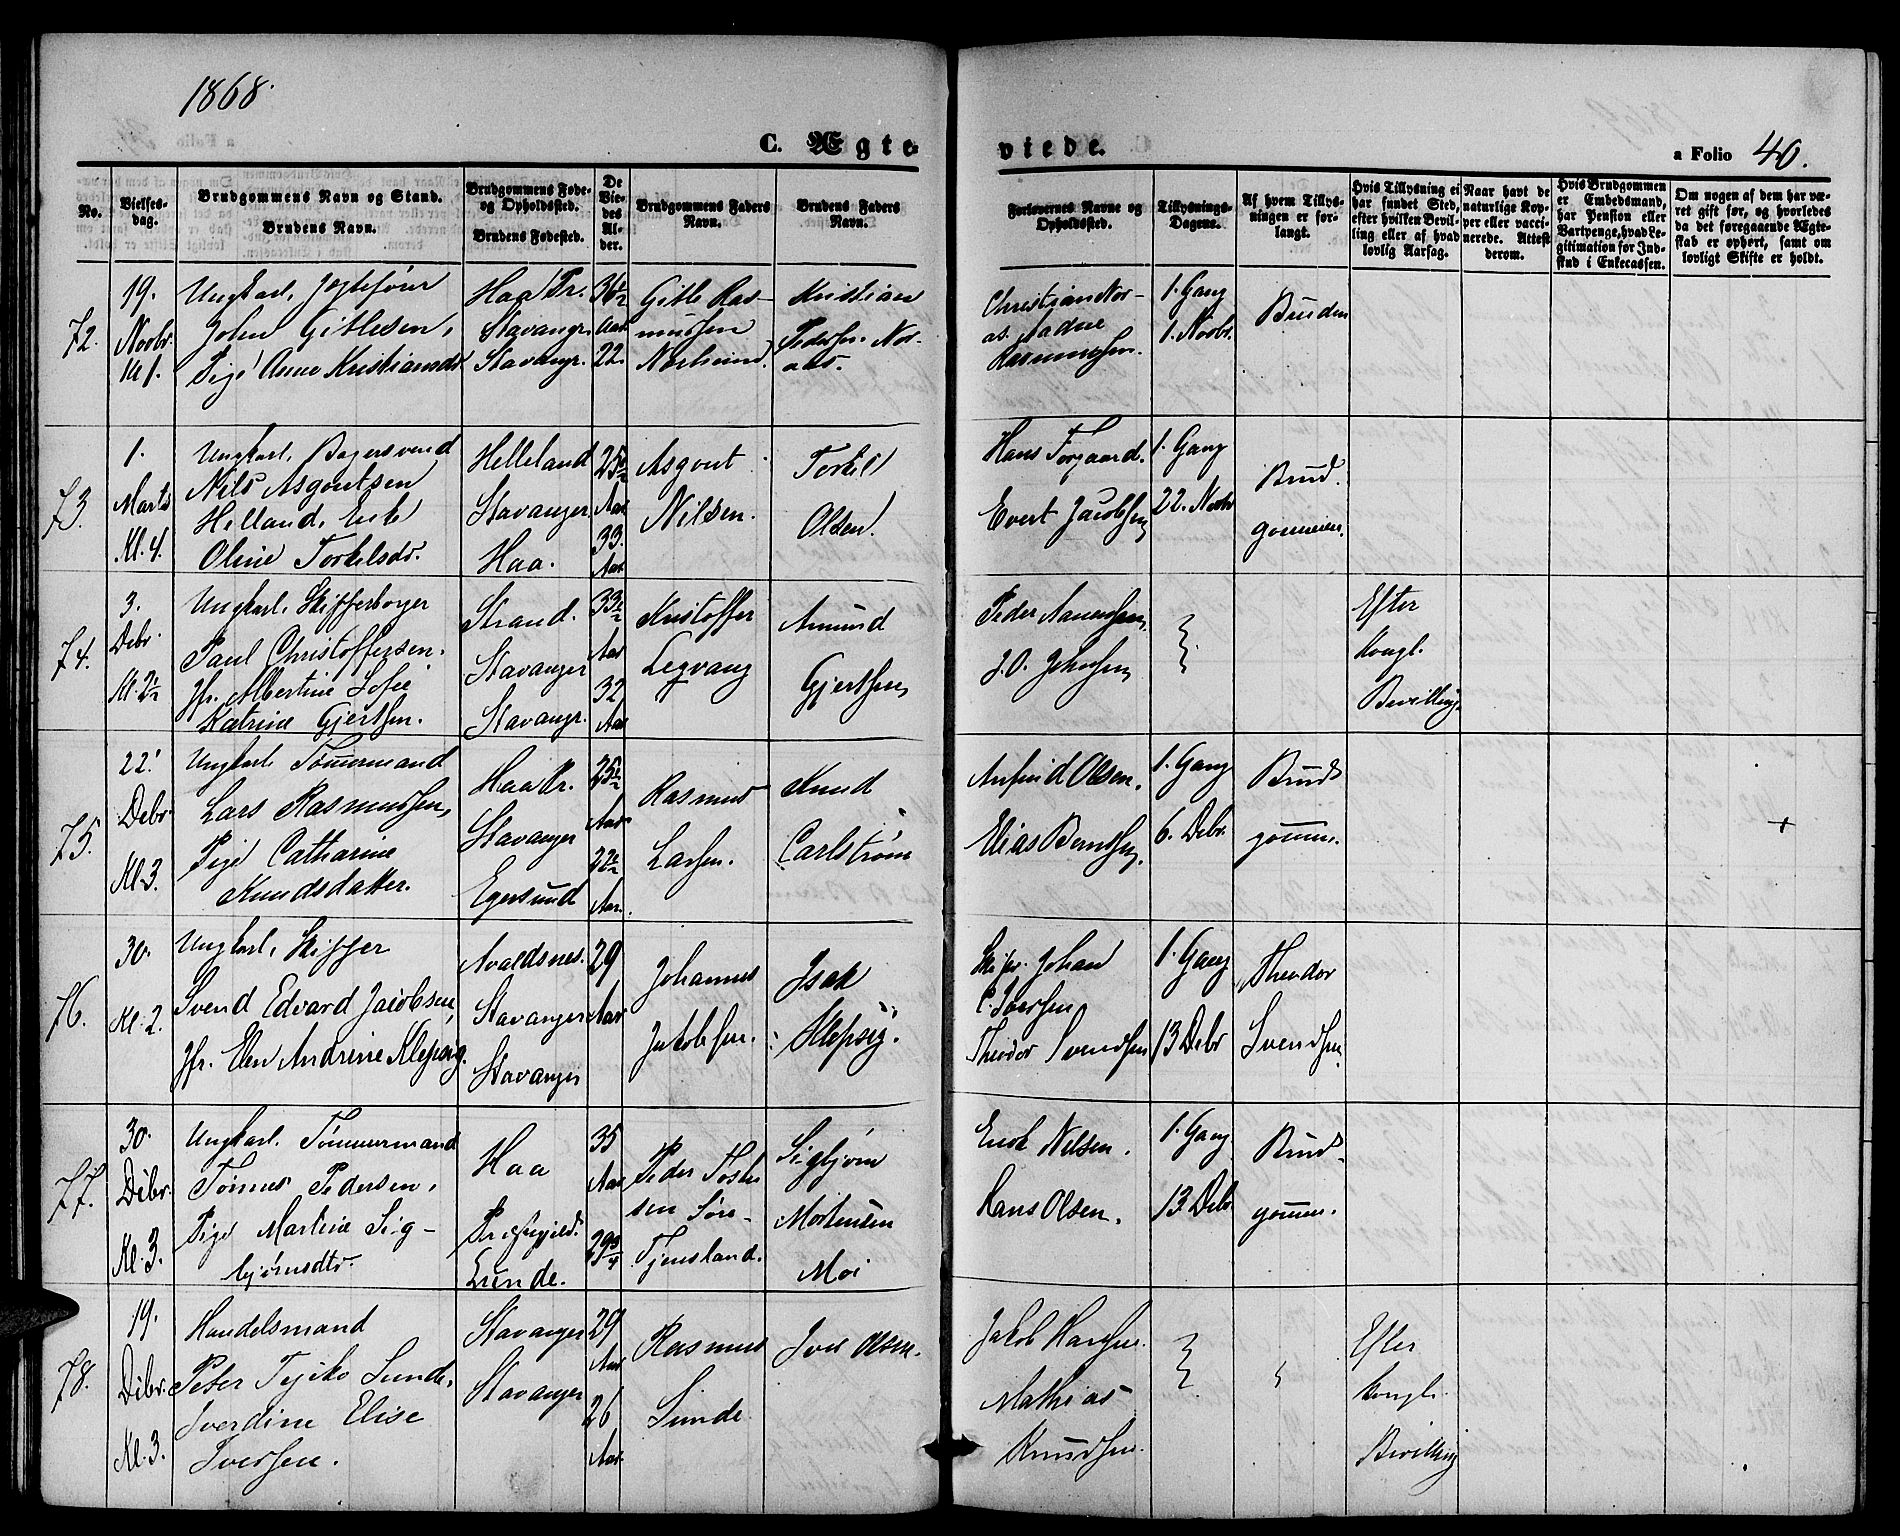 1868.
C. Ægte
viede.
a Folio 40.
No.
Vielses-
dag.
Brudgommens Navn og Stand.
Brudens Navn.
Brudgommens Føde-
og Opholdssted.
Brudens Fødested.
De
Vie-
des
Al-
der.
Brudgommens Faders
Navn.
Brudens Faders
Navn.
Forlovernes Navne og
Opholdssted.
Tillysnings-
Dagene.
Af hvem Tillys-
ningen er for-
langt.
Hvis Tillysning ei
har fundet Sted,
efter hvilken Bevil-
ling eller af hvad
lovlig Aarsag.
Naar havt de
naturlige Kop-
per eller vacci-
nerede. Attest
derom.
Hvis Brudgommen
er Embedsmand,
har Pension eller
Vartpenge, hvad Le-
gitimation for Ind-
skud i Enkecassen.
Om nogen af dem har væ-
ret gift før, og hvorledes
da det foregaaende Ægte-
skab er ophørt, samt om
lovligt Skifte er holdt.
72.
19.
Novbr.
Ungkarl,
John Gitlesen,
Pige Anne Kristiansdr
Haa Pr.
Stavangr.
Stavangr.
36½
Aar
22
Gitle Ras-
mussen
Norheim
Kristian
Pedersen Nor-
aas.
Christian Nor-
as. Aadne
Rasmussen.
1. Gang
1. Novbr.
Bruden
73.
1.
Marts
Kl. 4.
Ungkarl, Bagersvend
Nils Asgoutsen
Helland, Enke
Oline Torkelsdr.
Helleland
Stavanger
Haa.
25½
Aar
33.
Aar
Asgout
Nilsen.
Torkel
Olsen
Hans Torgaard.
Evert Jacobsen
1. Gang
22. Novbr
Brud-
gommen.
74.
3.
Debr.
Kl. 2½
Ungkarl, Skifferborger
Paul Christoffersen.
Jfr. Albertine Sofie
Katrine Gjertsen.
Strand.
Stavanger
Stavangr.
33½
Aar
32
Aar
Kristoffer
Legvang
Amund
Gjertsen
Peder Aanensen,
J. O. Johnsen
Efter
Kongl.
Bevilling
75.
22.
Debr.
Kl. 3.
Ungkarl Tømmermand
Lars Rasmussen,
Pige Catharine
Knudsdatter.
Haa Pr.
Stavanger
Egersund
25½
Aar
22½
Aar.
Rasmus
Larsen.
Knud
Carlstrøm
Anfind Olsen.
Elias Berntsen.
1. Gang
6. Debr.
Brud-
gommen.
+
76.
30.
Kl. 2.
Ungkarl, Skiffer
Svend Edvard Jacobsen,
Jfr. Elen Andrine Klepsig.
Avaldsnes.
Stavanger
Stavanger
29
Aar
Johannes
Jakobsen.
Isak
Klepsig.
Skipr. Johan
C. Iversen
Theodor Svendsen
1. Gang
13 Debr
Theodor
Svendsen
77.
30.
Debr.
Kl. 3.
Ungkarl. Tømmermand
Tønnes Pedersen,
Pige Martine Sig-
bjørnsdtr.
Haa
Præstegjeld
Lunde.
35
Aar
29¾
Peder
sen Søre-
Tjemsland.
Sigbjørn
Mortensen
Moi
Enok Nilsen.
Hans Olsen.
1. Gang
13 Debr
Brud-
gommen.
78.
19.
Debr.
Kl. 3.
Handelsmand
Peter Sunde,
Iverdine Elise
Iversen.
Stavanger
Stavanger
29
Aar
26
Aar
Rasmus
Sunde
Iver Olsen.
Jakob Hansen.
Mathias
Knudsen.
Efter
Kongl.
Bevilling